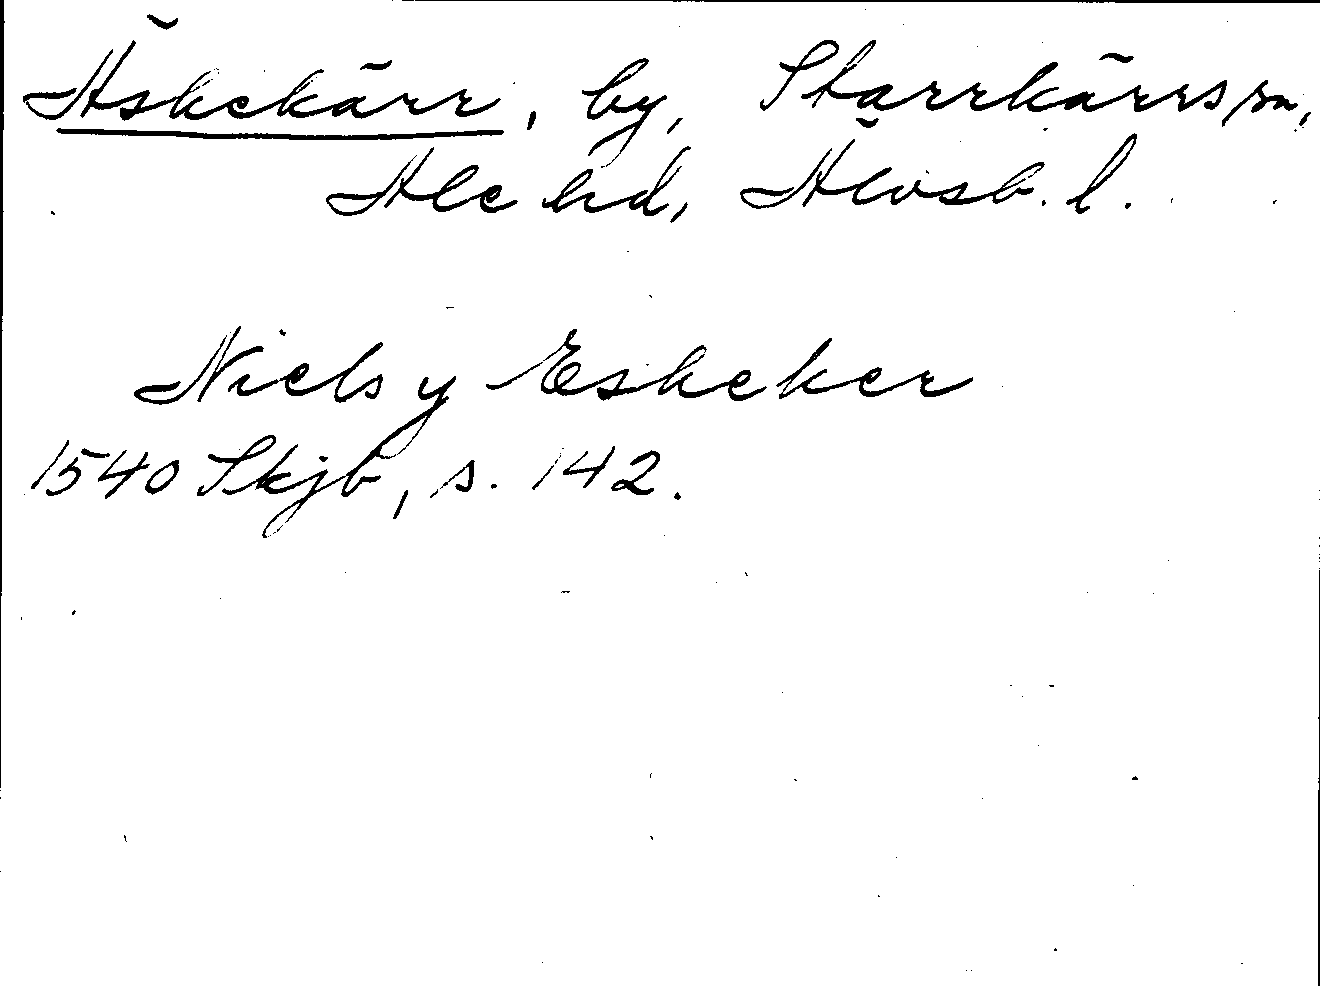 Äskekärr, by, Starrkärrs sn,
Ale hd, Älvsb. l.
Niels y Eskeker
1540 Skjb, s. 142.